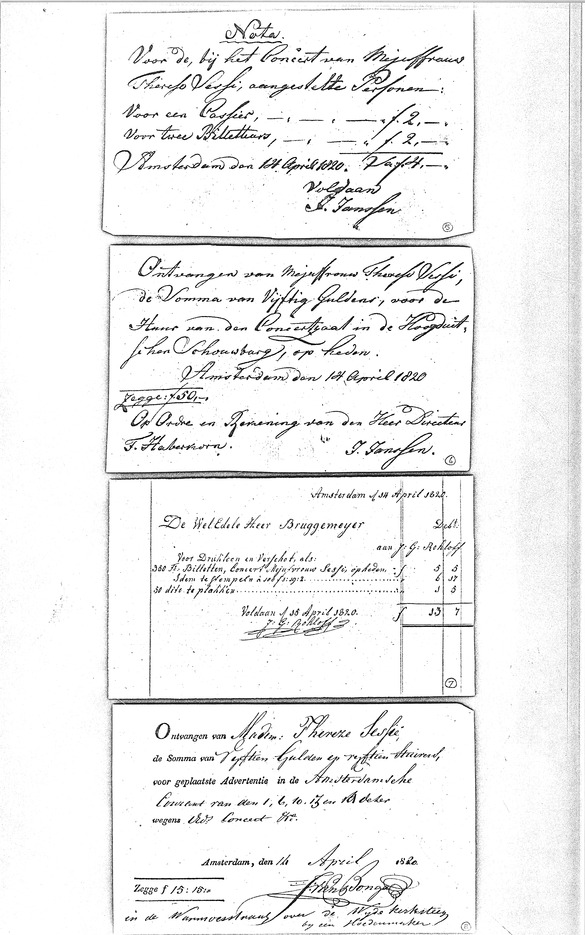 Nota.
Voor de, bij het Concert van Mejuffrouw
Therese Sessi, aangestelde Personen:
Voor een Cassier, — . — . — „ f. 2, — .
Voor twee Billetteurs, — . — „ f. 2, — .
Amsterdam den 14 April 1820. f 4, — .
Voldaan
J. Janssen
5
Ontvangen van Mejuffrouw Therese Sessi,
de Somma van Vijftig Guldens, voor de
Huur van den Concertzaal in de Hoogduit-
schen Schouwburg, op heden.
Amsterdam den 14 April 1820
Zegge: f 50,—
Op Ordre en Rekening van den Heer Directeur
T. Haberkorn. J. Janssen.
6
Amsterdam d 14 April 1820.
De WelEdele Heer Bruggemeyer Debt.
aan J: G: Rohloff
Voor Drukloon en Verschot, als:
380 Fr. Billetten, Concert Mejufvrouw Sessi, op heden f 5 5
Idem te stempeln 6 17
50 dito te plakken 1 5
Voldaan d 15 April 1820. f 13 7
J: G: Rohloff
7
Ontvangen van Madm: Thereze Sessi,
de Somma van Vyftien Gulden en vyftien Stuivers,
voor geplaatste Advertentie in de Amsterdamsche
Courant van den 1, 6, 10, 13 en deezer
wegens Concert &c.
Amsterdam, den 14 April 1820
Zegge f 15:15:
in de Warmoesstraat over de Wyde kerksteeg
by een Hoedenmaker